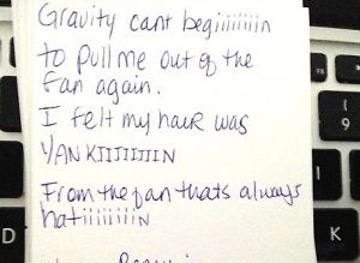 Gravity cant begiiiiiiin
to pull me out of the
fan again.
I felt my hair was
YANKIIIIIIIN
From the fan thats always
hatiiiiiiiiN
F6
(
9
I
D
K